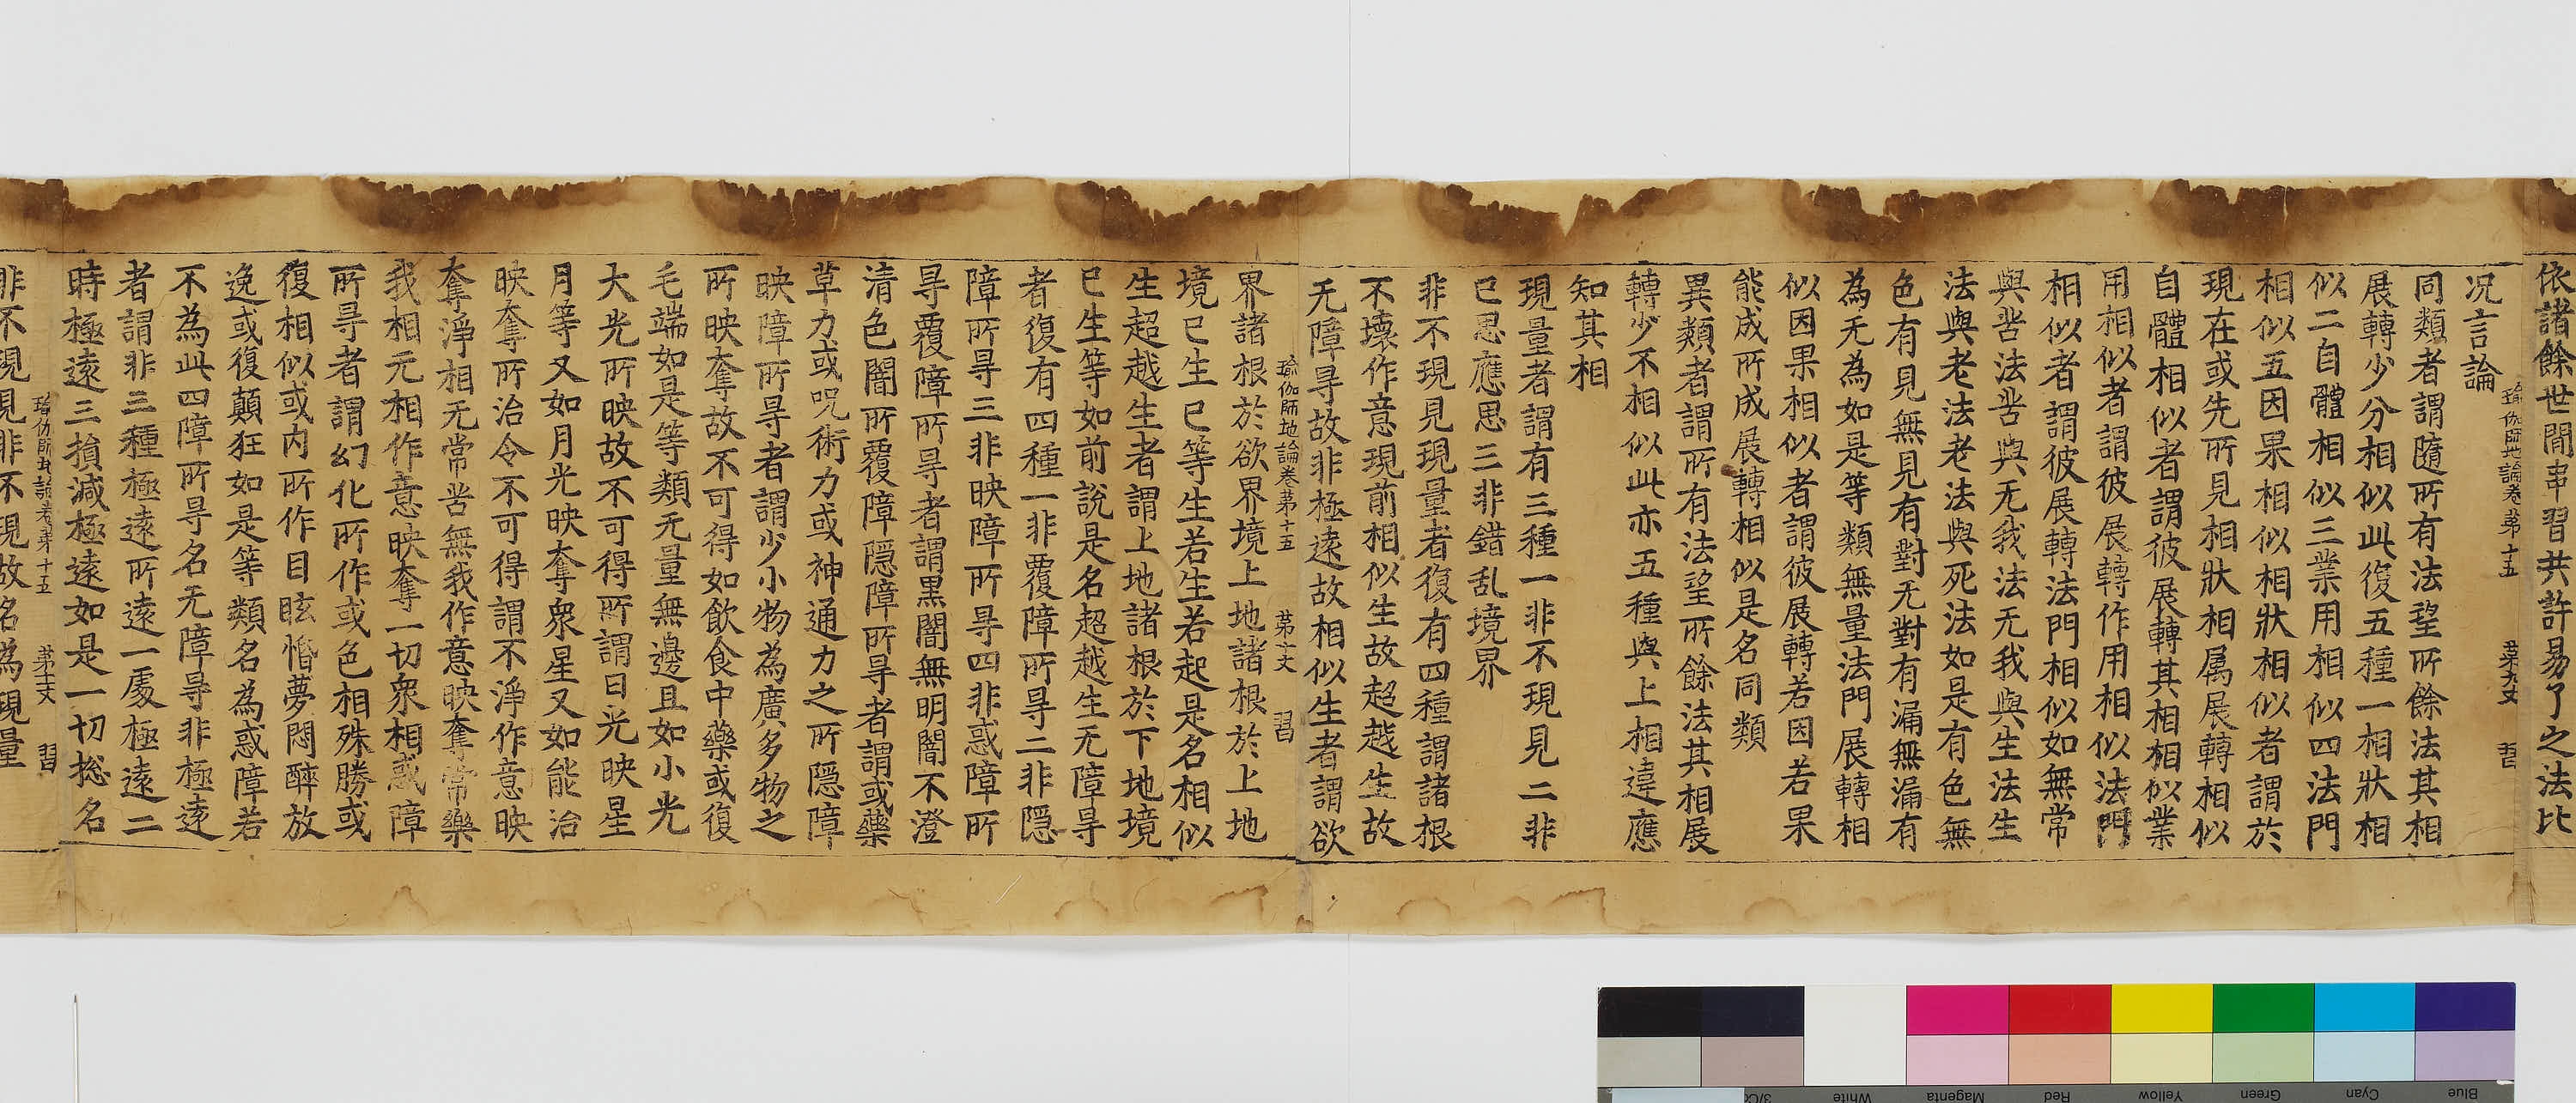 依諸餘世間串習共許易了之法比
况言論
瑜伽師地論卷苐十五　苐九丈　習
同類者謂隨所有法望所餘法其相
展轉少分相似此復五種一相狀相
似二自體相似三業用相似四法門
相似五因果相似相狀相似者謂於
現在或先所見相狀相属展轉相似
自體相似者謂彼展轉其相相似業
用相似者謂彼展轉作用相似法門
相似者謂彼展轉法門相似如無常
與苦法苦與无我法无我與生法生
法與老法老法與死法如是有色無
色有見無見有對无對有漏無漏有
為无為如是等類無量法門展轉相
似因果相似者謂彼展轉若因若果
能成所成展轉相似是名同類
異類者謂所有法望所餘法其相展
轉少不相似此亦五種與上相違應
知其相
現量者謂有三種一非不現見二非
已思應思三非錯乱境界
非不現見現量者復有四種謂諸根
不壞作意現前相似生故超越生故
无障㝵故非極遠故相似生者謂欲
瑜伽師地論卷苐十五　苐十丈　習
界諸根於欲界境上地諸根於上地
境已生已等生若生若起是名相似
生超越生者謂上地諸根於下地境
已生等如前說是名超越生无障㝵
者復有四種一非覆障所㝵二非隠
障所㝵三非映障所㝵四非惑障所
㝵覆障所㝵者謂黒闇無明闇不澄
清色闇所覆障隠障所㝵者謂或藥
草力或呪術力或神通力之所隠障
映障所㝵者謂少小物為廣多物之
所映奪故不可得如飲食中藥或復
毛端如是等類无量無邊且如小光
大光所映故不可得所謂日光映星
月等又如月光映奪衆星又如能治
映奪所治令不可得謂不淨作意映
奪淨相无常苦無我作意映奪常樂
我相无相作意映奪一切衆相惑障
所㝵者謂幻化所作或色相殊勝或
復相似或内所作目眩惛夢悶醉放
逸或復顛狂如是等類名為惑障若
不為此四障所㝵名无障㝵非極遠
者謂非三種極遠所遠一處極遠二
時極遠三損減極遠如是一切捴名
瑜伽師地論卷苐十五　苐十一丈　習
非不現見非不現故名為現量